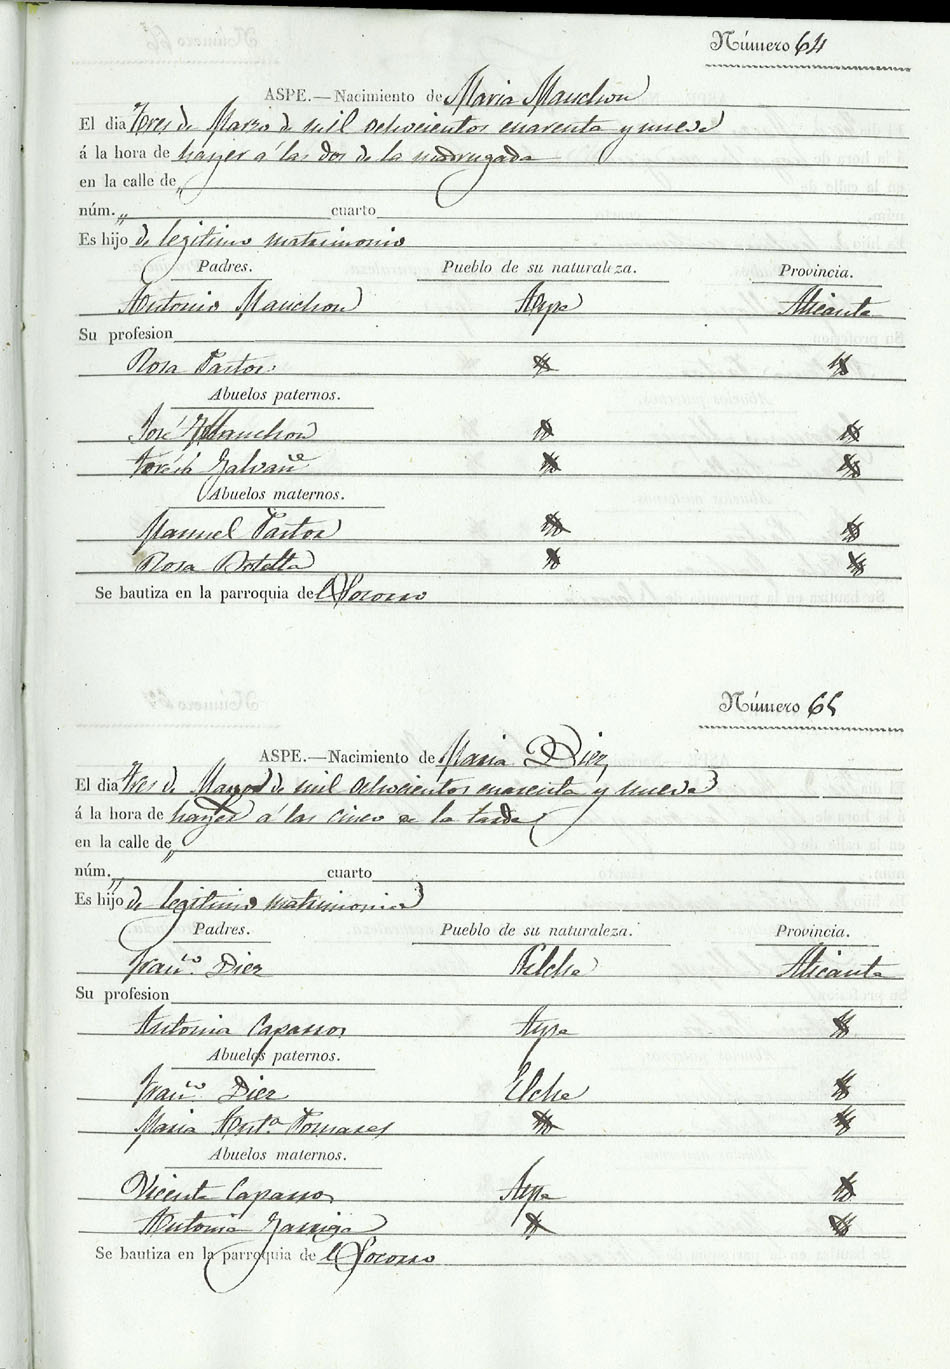 Número 64
ASPE.—Nacimiento de Maria Mauchon
El dia tres de Marzo de mil ochocientos cuarenta y nueve
á la hora de hayer a las dos de la madrugada
en la calle de „
núm. „ cuarto
Es hijo de legitimo matrimonio
Padres. Pueblo de su naturaleza. Provincia.
Antonio Mauchon Aspe Alicante
Su profesion
Rosa Pastor
Abuelos paternos.
José Mauchon
Teresa Galvañ
Abuelos maternos.
Manuel Pastor
Rosa Botella
Se bautiza en la parroquia de el Socorro
Número 65
ASPE.—Nacimiento de Maria Diez
El dia tres de Marzo de mil ochocientos cuarenta y nueve
á la hora de hayer á las cinco de la tarde
en la calle de „
núm. „ cuarto
Es hijo de legitimo matrimonio
Padres. Pueblo de su naturaleza. Provincia.
Franco. Diez Elche Alicante
Su profesion
Antonia Caparros Aspe
Abuelos paternos.
Franco. Diez Elche
Maria Anta. Pomares
Abuelos maternos.
Vicente Caparros Aspe
Antonia Garriga
Se bautiza en la parroquia de el Socorro